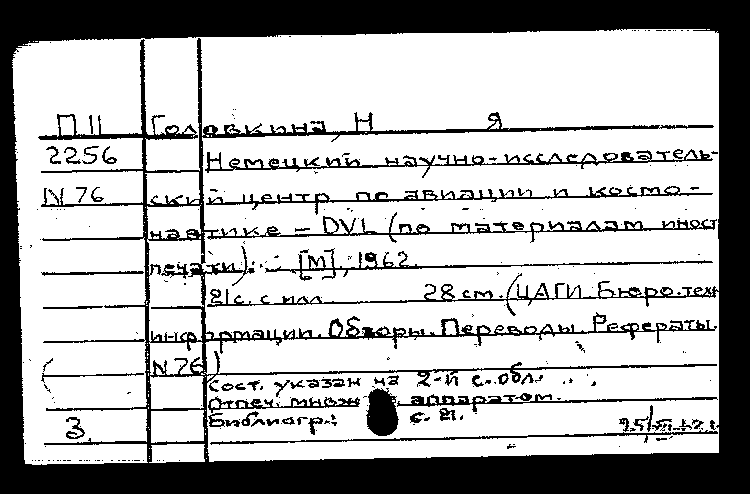 П 11 Головкина, Н Я
2256 Немецкий научно-исследователь-
N 76 ский центр по авиации и космо-
навтике - DVL (по материалам иност
печати). - [М], 1962.
21с. с илл 28 см. (ЦАГИ. Бюро. техн
информации. Обзоры. Переводы. Рефераты.
N 76)
Сост. указан на 2-й с. обл.
Отпеч. множ. аппаратом.
Библиогр.: с. 21.
3.